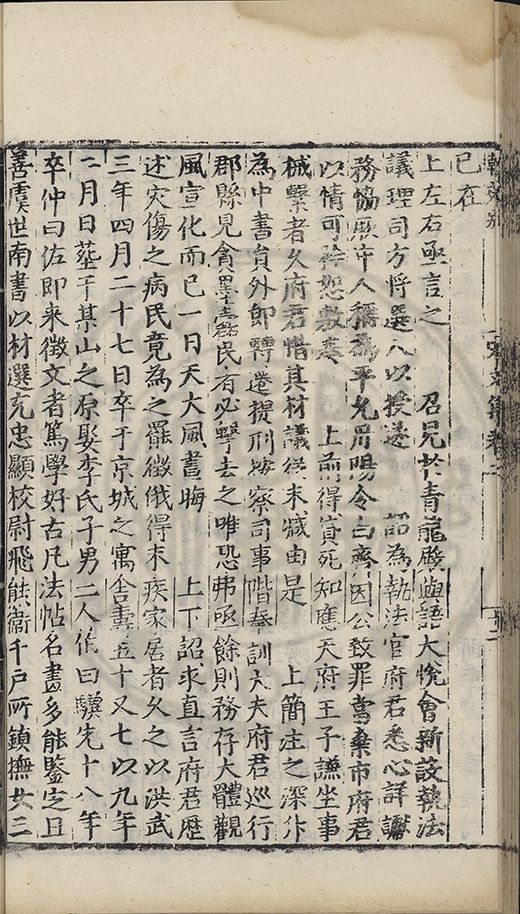 已在
上左右亟言之　召見於青龍殿與語大悅會新設執法
議理司方將選人以授遂　詔為執法官府君悉心詳讞
務協厥中人稱為平允周陽令白齊因公致罪當棄市府君
以情可矜恕敷奏　上前得貸死知應天府王子謙坐事
械繫者久府君惜其材議從末減由是　上簡注之深升
為中書員外郎轉遷提刑按察司事階奉訓大夫府君巡行
郡縣見貪墨蠹民者必擊去之唯恐弗亟餘則務存大體觀
風宣化而已一日天大風晝晦　上下詔求直言府君歷
述災傷之病民竟為之罷徵俄得末疾家居者久之以洪武
三年四月二十七日卒于京城之寓舍壽五十又七以九年
二月日塟于某山之原娶李氏子男二人伯曰驥先十八年
卒仲曰佐即來徵文者篤學好古凡法帖名畫多能鑒定且
善虞世南書以材選充忠顯校尉飛熊衛千戶所鎮撫女三